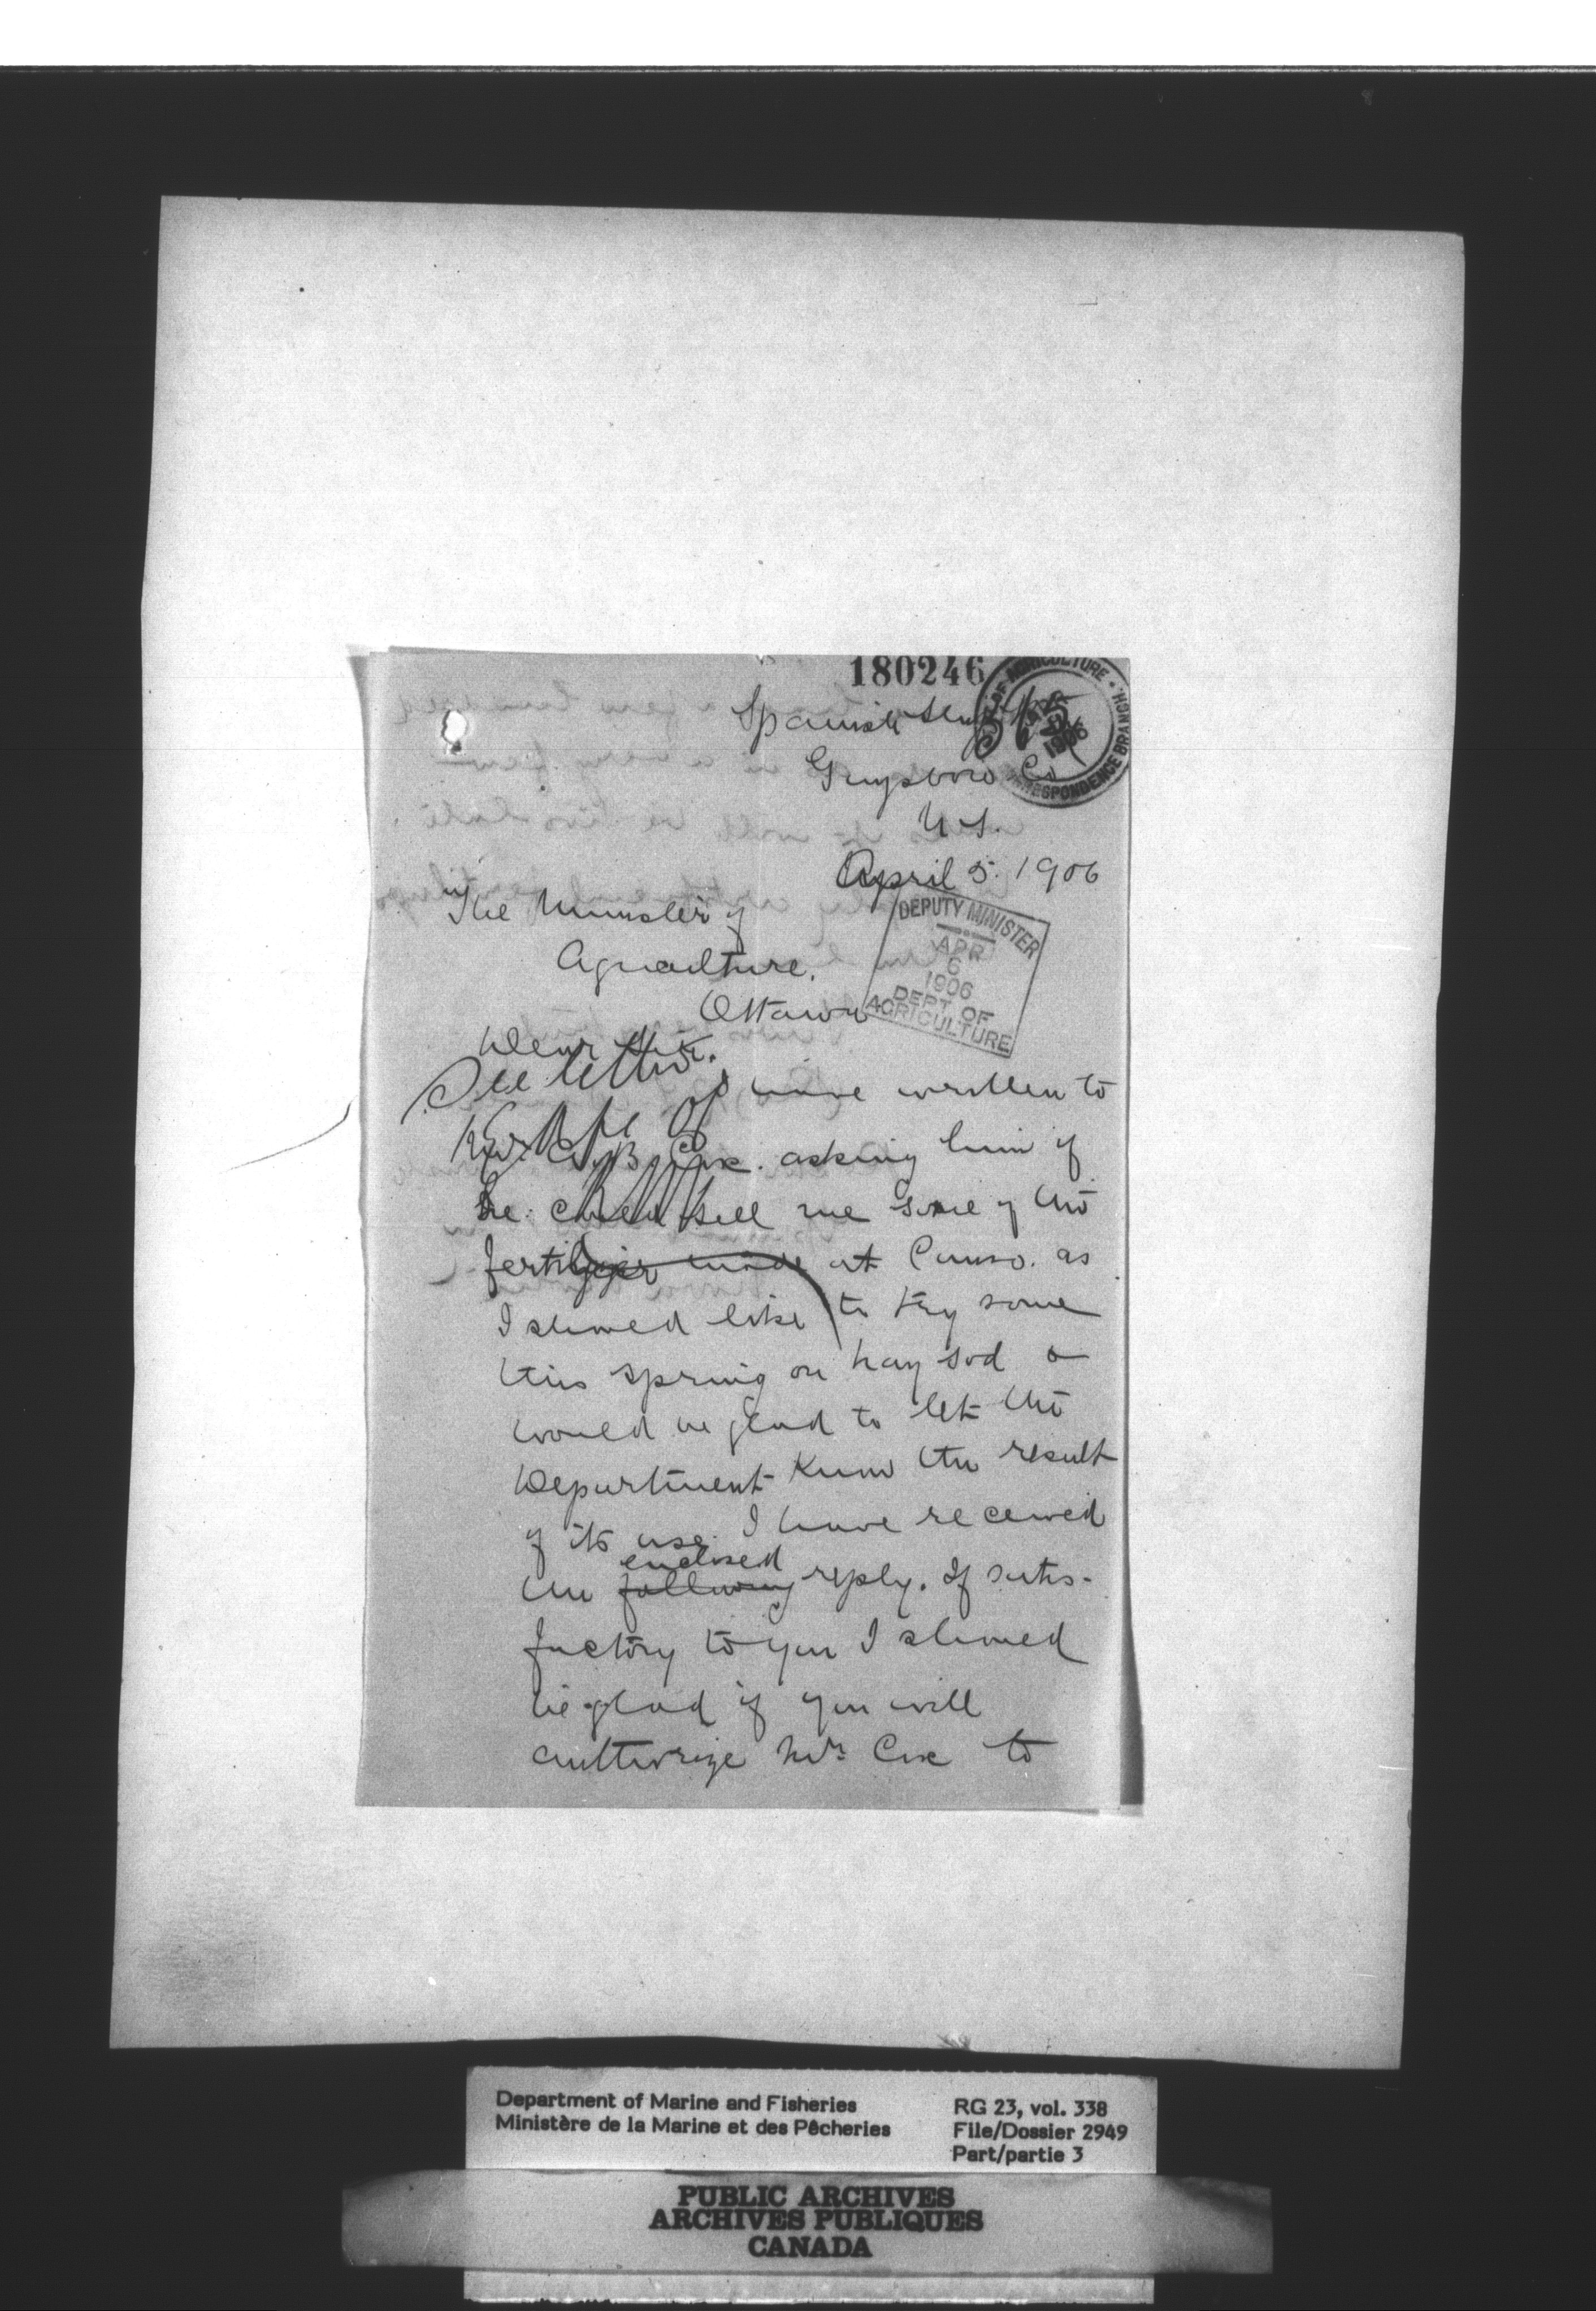 180246
Spanish Ship
Guysboro Co
N.S.
April 5. 1906
DEPT. OF AGRICULTURE
1906
CORRESPONDENCE BRANCH.
The Minister of
Agriculture.
Ottawa
DEPUTY MINISTER
APR
6
1906
DEPT. OF
AGRICULTURE
Dear Sir.
See letter
I have written to
Mr. C. B. Cox. asking him if
he could sell me some of the
fertilizer made at Canso. as
I should like to try some
this spring on hay sod &
would be glad to let the
Department know the result
of its use. I have received
enclosed
the following reply. If satis-
factory to you I should
be glad if you will
authorize Mr. Cox to
Department of Marine and Fisheries
Ministère de la Marine et des Pêcheries
RG 23, vol. 338
File/Dossier 2949
Part/partie 3
PUBLIC ARCHIVES
ARCHIVES PUBLIQUES
CANADA